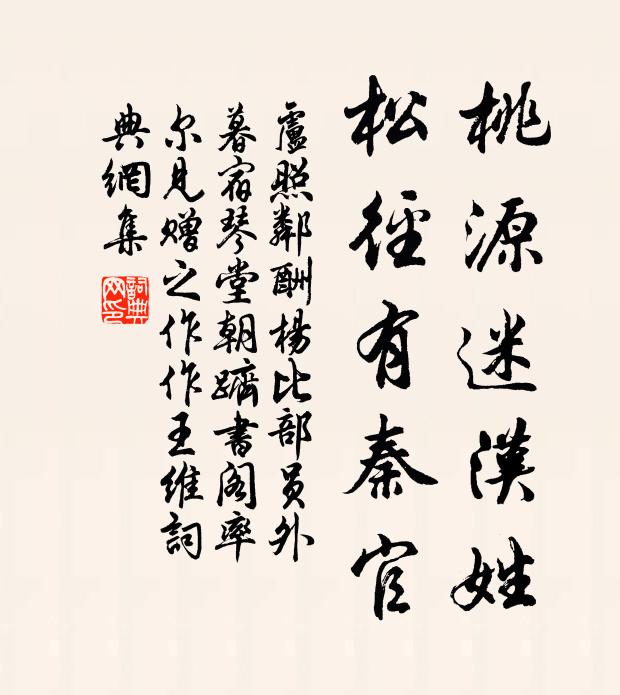 桃源迷漢姓
松徑有秦官
盧照鄰酬楊比部員外
暮宿琴堂朝躋書閣率
尔見贈之作作王維詞
典網集
詞典網印